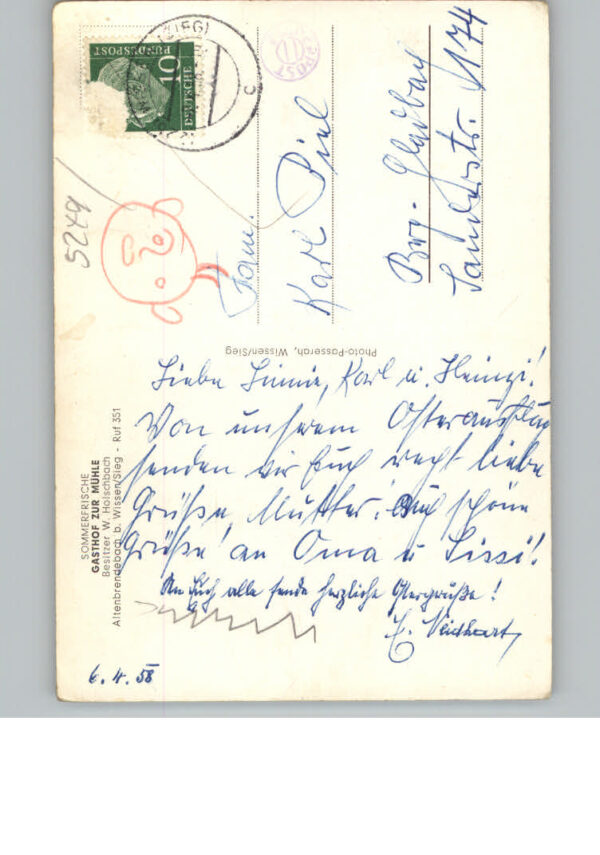 SOMMERFRISCHE
GASTHOF ZUR MÜHLE
Besitzer W. Holschbach
Altenbrendebach b. Wissen/Sieg - Ruf 351
Photo-Passerah, Wissen/Sieg
DEUTSCHE
BUNDESPOST
10
(SIEG)
c
POST
5249
Fam.
Karl Piel
Brg.-Gladbach
Sanderstr. 174
Liebe Linnie, Karl u. Heinzi!
Von unserem Osterausflug
senden wir Euch recht liebe
Grüße, Mutter. Auch schöne
Grüße an Oma u Sissi!
An Euch alle sende herzliche Ostergrüße!
6. 4. 58